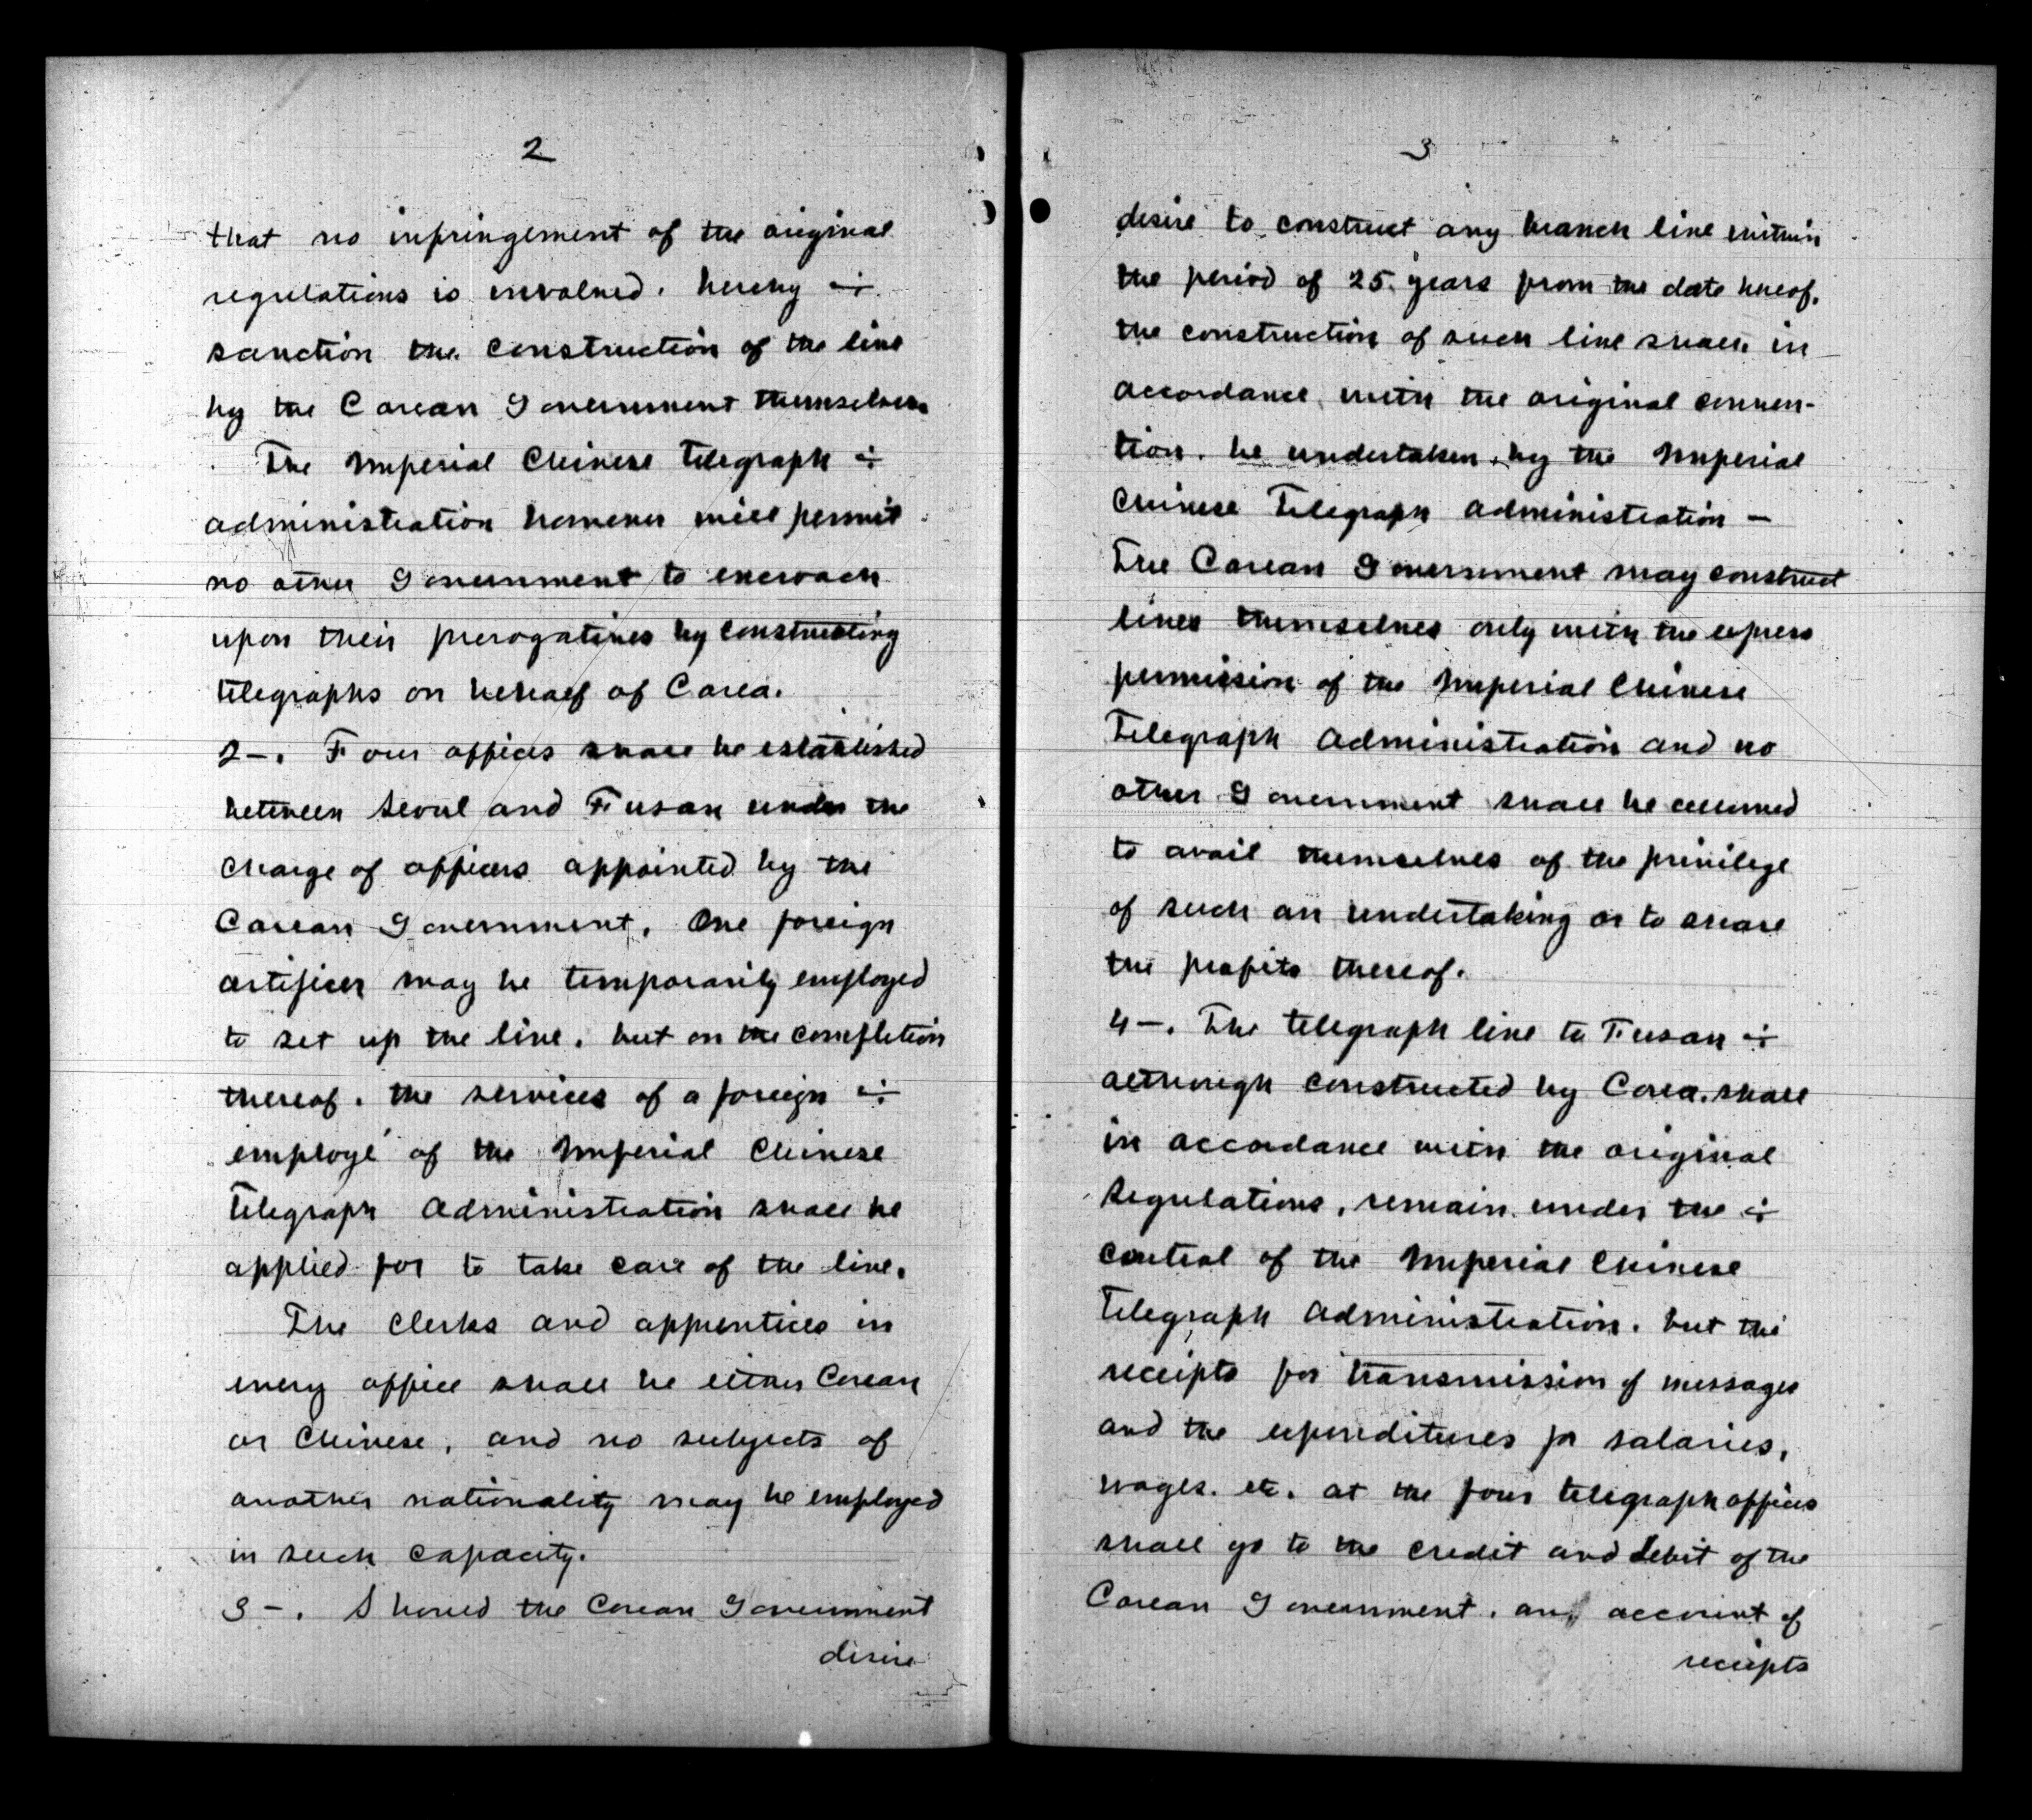 2
that no infringement of the original
regulations is involved, hereby ÷
sanction the construction of the line
by the Corean Government themselves
The Imperial Chinese Telegraph ÷
administration however will permit
no other Government to encroach
upon their prerogatives by constructing
telegraphs on behalf of Corea.
2-. Four offices shall be established
between Seoul and Fusan under the
charge of officers appointed by the
Corean Government. One foreign
artificer may be temporarily employed
to set up the line, but on the completion
thereof, the services of a foreign ÷
employé of the Imperial Chinese
Telegraph Administration shall be
applied for to take care of the line.
The clerks and apprentices in
every office shall be either Corean
or Chinese, and no subjects of
another nationality may be employed
in such capacity.
3-. Should the Corean Government
desire
3
desire to construct any branch line within
the period of 25 years from the date hereof,
the construction of such line shall in
accordance with the original conven-
tion, be undertaken by the Imperial
Chinese Telegraph Administration -
The Corean Government may construct
lines themselves only with the express
permission of the Imperial Chinese
Telegraph Administration and no
other Government shall be allowed
to avail themselves of the privilege
of such an undertaking or to share
the profits thereof.
4-. The telegraph line to Fusan ÷
although constructed by Corea, shall
in accordance with the original
Regulations, remain under the ÷
control of the Imperial Chinese
Telegraph Administration, but the
receipts for transmission of messages
and the expenditures for salaries,
wages, etc. at the four telegraph offices
shall go to the credit and debit of the
Corean Government, any account of
receipts